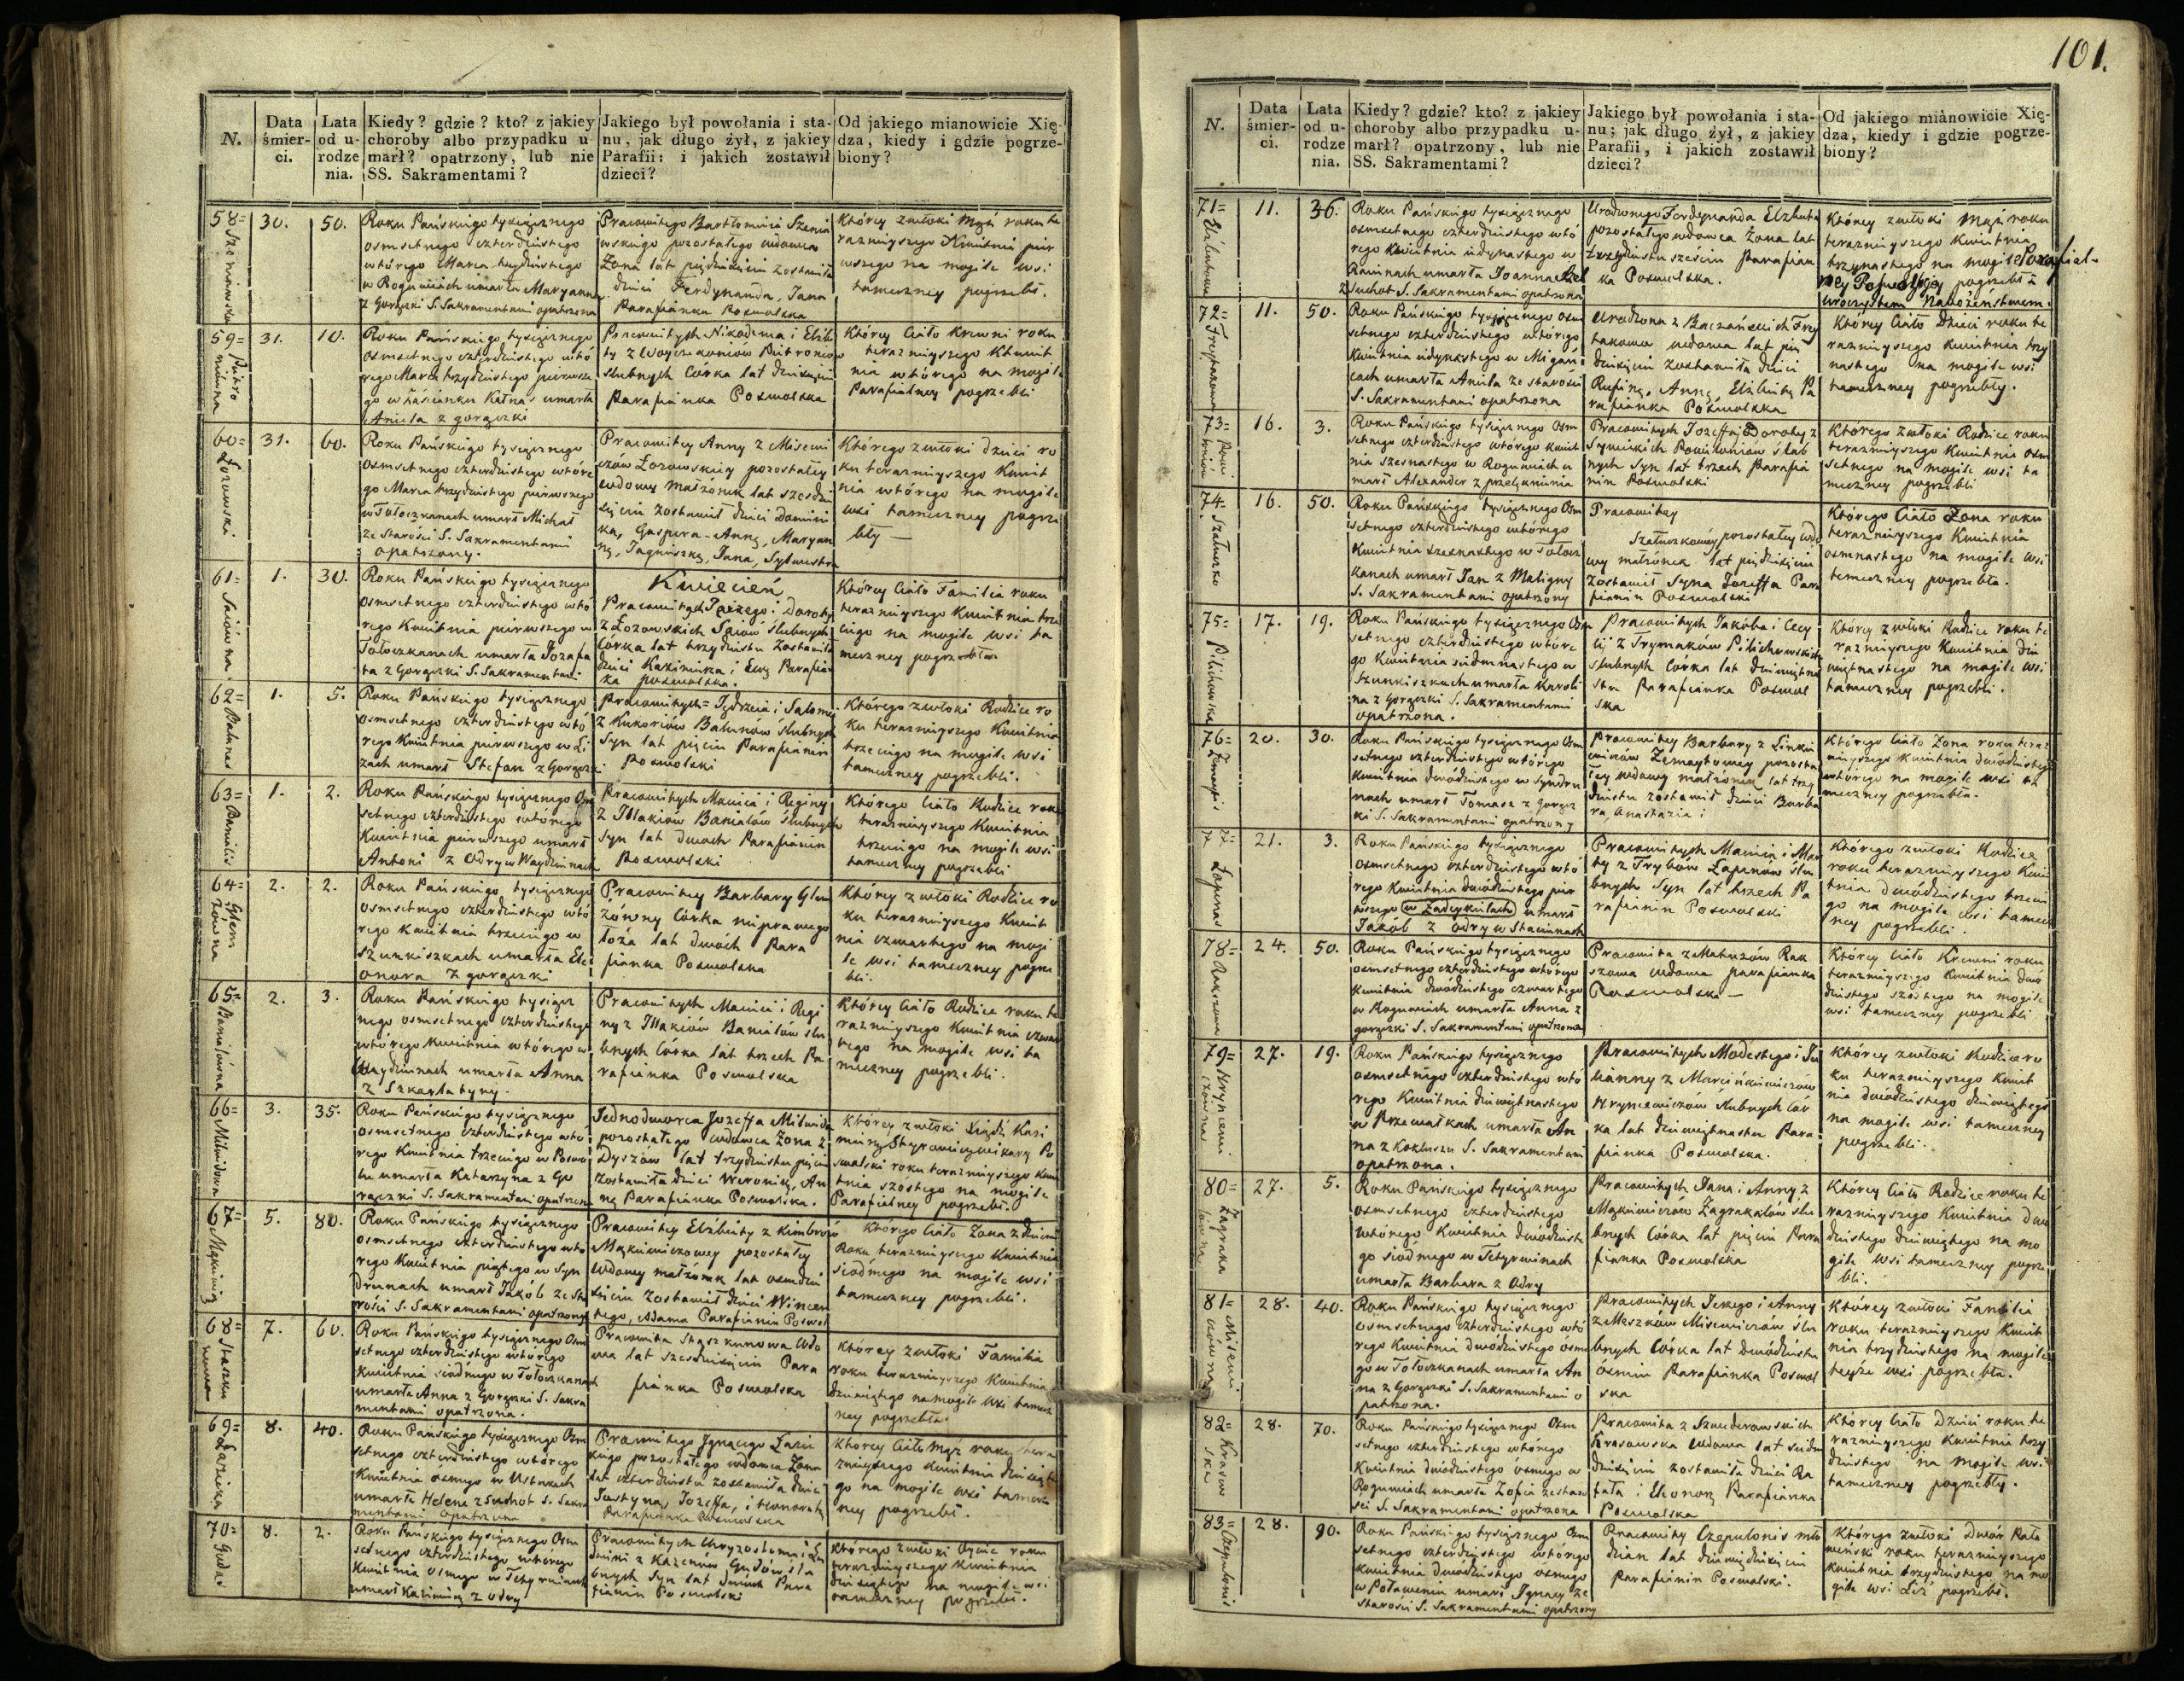 N.
Data śmier- ci.
Lata od u- rodze nia.
Kiedy? gdzie? kto? z jakiey choroby albo przypadku u- marł? opatrzony, lub nie SS. Sakramentami?
Jakiego był powołania i sta- nu, jak długo żył, z jakiey Parafii: i jakich zostawił dzieci?
Od jakiego mianowicie Xię- dza, kiedy i gdzie pogrze- biony?
58=
30.
50.
Roku Pańskiego tysiącznego
osmsetnego czterdziestego
wtórego Marca trzydziestego
w Roguniach umarła Maryanna
z Gorączki S. Sakramentami opatrzona
Pracowitego Bartłomieia
pozostałego wdowca
Żona lat pięćdziesiąt zostawiła
dzieci Ferdynanda, Jana
Parafianka Poswolska
Którey zwłoki Mąż roku te
raznieyszego Kwietnia pier
wszego na mogile wsi
tameczney pogrzebł.
59=
31.
10.
Roku Pańskiego tysiącznego
osmsetnego czterdziestego wtó
rego Marca trzydziestego pierwsze
go w umarła
Aniela z gorączki
Pracowitych Nikodema i Elżbie
ty z
slubnych Córka lat dziesięciu
Parafianka Poswolska
Którey Ciało Krewni roku
teraznieyszego Kwiet
nia wtórego na mogile
Parafialney pogrzebli
60=
31.
60.
Roku Pańskiego tysiącznego
osmsetnego czterdziestego wtóre
go Marca trzydziestego pierwszego
w Tołoczkanach umarł Michał
ze starości S. Sakramentami
opatrzony.
Pracowitey Anny z Misewi
czów Łozowskiey pozostałey
wdowy małżonek lat sześćdzie
sięciu zostawił dzieci Domini
ka, Gaspera, Annę, Maryan
nę, Jagnieszkę, Jana, Sylwestra
Którego zwłoki dzieci ro
ku teraznieyszego Kwiet
nia wtórego na mogile
wsi tameczney pogrze
bły —
61=
1.
30.
Roku Pańskiego tysiącznego
osmsetnego czterdziestego wtó
rego Kwietnia pierwszego w
Tołoczkanach umarła Jozefa
ta z Gorączki S. Sakramentami
Kwiecień
Pracowitych i Doroty
z Łozowskich slubnych
Córka lat trzydziestu zostawiła
dzieci Kazimierza i Ewę Parafian
ka Poswolska.
Którey Ciało Familia roku
teraznieyszego Kwietnia trze
ciego na mogile wsi ta
meczney pogrzebła
62=
Balunas
1.
5.
Roku Pańskiego tysiącznego
osmsetnego czterdziestego wtó
rego Kwietnia pierwszego w Li
zach umarł Stefan z Gorączki
Pracowitych Jędrzeia i Salomei
z Kukoriów Balunów slubnych
Syn lat pięciu Parafianin
Poswolski
Którego zwłoki Rodzice ro
ku teraznieyszego Kwietnia
trzeciego na mogile wsi
tameczney pogrzebli.
63=
1.
2.
Roku Pańskiego tysiącznego Osm
setnego czterdziestego wtórego
Kwietnia pierwszego umarł
Antoni z Odry w Waydzinach
Pracowitych Macieia i Reginy
z slubnych
Syn lat dwoch Parafianin
Poswolski
Którego Ciało Rodzice roku
teraznieyszego Kwietnia
trzeciego na mogile wsi
tameczney pogrzebli
64=
2.
2.
Roku Pańskiego tysiącznego
osmsetnego czterdziestego wtó
rego Kwietnia trzeciego w
Szunkiszkach umarła Ele
onora z gorączki
Pracowitey Barbary Glem
zówney Córka nieprawego
łoża lat dwóch Para
fianka Poswolska
Którey zwłoki Rodzice ro
ku teraznieyszego Kwiet
nia czwartego na mogi
le wsi tameczney pogrze
bli.
65=
2.
3.
Roku Pańskiego tysiącz
nego osmsetnego czterdziestego
wtórego Kwietnia wtórego w
Waydzinach umarła Anna
z Szkarlatyny.
Pracowitych Macieia i Regi
ny z slu
bnych Córka lat trzech Pa
rafianka Poswolska
Którey Ciało Rodzice roku te
raznieyszego Kwietnia czwar
tego na mogile wsi ta
meczney pogrzebli.
66=
3.
35.
Roku Pańskiego tysiącznego
osmsetnego czterdziestego wtó
rego Kwietnia trzeciego w Poswo
lu umarła Katarzyna z Go
rączki S. Sakramentami opatrzona
Jednodworca Jozeffa Milwida
pozostałego wdowca Żona z
Dyszów lat trzydziestu pięciu
zostawiła dzieci Weronikę, An
nę Parafianka Poswolska.
Którey zwłoki Xiądz Kazi
mierz wikary Po
swolski roku teraznieyszego Kwie
tnia szóstego na mogile
Parafialney pogrzebł.
67=
5.
80.
Roku Pańskiego tysiącznego
osmsetnego czterdziestego wtó
rego Kwietnia piątego w Syn
drunach umarł Jakób ze sta
rości S. Sakramentami opatrzony
Pracowitey Elżbiety z
pozostałey
wdowy małżonek lat osiemdzie
sięciu zostawił dzieci Wincen
tego, Adama Parafianin Poswol
Którego Ciało Żona z dziećmi
Roku teraznieyszego Kwietnia
siodmego na mogile wsi
tameczney pogrzebli.
68=
7.
60.
Roku Pańskiego tysiącznego Osm
setnego czterdziestego wtórego
Kwietnia siodmego w Tołoczkanach
umarła Anna z Gorączki S. Sakra
mentami opatrzona.
Pracowita Staszkunowa Wdo
wa lat sześćdziesięciu Para
fianka Poswolska
Którey zwłoki Familia
roku teraznieyszego Kwietnia
dziewiątego na mogile wsi tamecz
ney pogrzebła.
69=
8.
40.
Roku Pańskiego tysiącznego Osm
setnego czterdziestego wtórego
Kwietnia osmego w
umarła Helena z Suchot S. Sakra
mentami opatrzona
Pracowitego Ignacego
pozostałego wdowca Żona
lat czterdziestu zostawiła dzieci
Justynę, Jozeffa, i Honoratę
Parafianka Poswolska
Którey Ciało Mąż roku tera
znieyszego Kwietnia dziewiąte
go na mogile wsi tamecz
ney pogrzebł.
70=
Gudas
8.
2.
Roku Pańskiego tysiącznego Osm
setnego czterdziestego wtórego
Kwietnia osmego w
umarł Kazimierz z Odry
Pracowitych Chryzostoma i
z Gudów slu
bnych Syn lat dwóch Para
fianin Poswolski
Którego zwłoki Oycie roku
teraznieyszego Kwietnia
dziewiątego na mogile wsi
tameczney pogrzebł.
101.
N.
Data śmier- ci.
Lata od u- rodze nia.
Kiedy? gdzie? kto? z jakiey choroby albo przypadku u- marł? opatrzony, lub nie SS. Sakramentami?
Jakiego był powołania i sta- nu; jak długo żył, z jakiey Parafii, i jakich zostawił dzieci?
Od jakiego mianowicie Xię- dza, kiedy i gdzie pogrze- biony?
71=
11.
36.
Roku Pańskiego tysiącznego
osmsetnego czterdziestego wtó
rego Kwietnia iedynastego w
umarła Joanna
z Suchot S. Sakramentami opatrzona
Urodzonego Ferdynanda
pozostałego wdowca Żona lat
trzydziestu sześciu Parafian
ka Poswolska.
Którey zwłoki Mąż roku
teraznieyszego Kwietnia
trzynastego na mogile Parafial-
ney pogrzebł z
uroczystem Nabożeństwem.
72=
11.
50.
Roku Pańskiego tysiącznego osm
setnego czterdziestego wtórego
Kwietnia iedynastego w Migań
cach umarła Aniela ze starości
S. Sakramentami opatrzona
Urodzona z
wdowa lat pię
dziesięciu zostawiła dzieci
Rufinę, Annę, Elżbietę Pa
rafianka Poswolska
Którey Ciało Dzieci roku te
raznieyszego Kwietnia trzy
nastego na mogile wsi
tameczney pogrzebły.
73=
16.
3.
Roku Pańskiego tysiącznego Osm
setnego czterdziestego wtórego Kwiet
nia szesnastego w Roguniach u
marł Alexander z przelęknienia
Pracowitych Jozeffa i Doroty z
slub
nych Syn lat trzech Parafia
nin Poswolski
Którego zwłoki Rodzice roku
teraznieyszego Kwietnia osm
setnego na mogile wsi ta
meczney pogrzebli
74=
16.
50.
Roku Pańskiego tysiącznego Osm
setnego czterdziestego wtórego
Kwietnia szesnastego w Tołocz
kanach umarł Jan z Maligny
S. Sakramentami opatrzony
Pracowitey
pozostałey wdo
wy małżonek lat pięćdziesięciu
zostawił Syna Jozeffa Para
fianin Poswolski
Którego Ciało Żona roku
teraznieyszego Kwietnia
osmnastego na mogile wsi
tameczney pogrzebła.
75=
17.
19.
Roku Pańskiego tysiącznego Osm
setnego czterdziestego wtóre
go Kwietnia siedmnastego w
Szunkiszkach umarła Karoli
na z Gorączki S. Sakramentami
opatrzona.
Pracowitych Jakóba i Cecy
lii z Trymaków Pilichowskich
slubnych Córka lat dziewiętna
stu Parafianka Poswol
ska
Którey zwłoki Rodzice roku te
raznieyszego Kwietnia dzie
więtnastego na mogile wsi
tameczney pogrzebli.
76=
20.
30.
Roku Pańskiego tysiącznego Osm
setnego czterdziestego wtórego
Kwietnia dwódziestego w Syndru
nach umarł Tomasz z Gorącz
ki S. Sakramentami opatrzony
Pracowitey Barbary z Linkie
wiczów pozosta
łey wdowy małżonek lat trzy
dziestu zostawił dzieci Barba
ra, Anastazia i
Którego Ciało Żona roku teraz
nieyszego Kwietnia dwódziestego
wtórego na mogile wsi ta
meczney pogrzebła.
77=
Łapinas
21.
3.
Roku Pańskiego tysiącznego
osmsetnego czterdziestego wtó
rego Kwietnia dwódziestego pier
wszego w Zadeykielach umarł
Jakób z Odry w Staciunach
Pracowitych Macieia i Mar
ty z Trybów Łapinów slu
bnych Syn lat trzech Pa
rafianin Poswolski
Którego zwłoki Rodzice
roku teraznieyszego Kwie
tnia dwódziestego trzecie
go na mogile wsi tamecz
ney pogrzebli.
78=
24.
50.
Roku Pańskiego tysiącznego
osmsetnego czterdziestego wtórego
Kwietnia dwódziestego czwartego
w Roguniach umarła Anna z
gorączki S. Sakramentami opatrzona
Pracowita z Matuzów Rak
szowa wdowa parafianka
Poswolska —
Którey Ciało Krewni roku
teraznieyszego Kwietnia dwó
dziestego szóstego na mogile
wsi tameczney pogrzebli
79=
27.
19.
Roku Pańskiego tysiącznego
osmsetnego czterdziestego wtó
rego Kwietnia dziewiętnastego
w Przewałkach umarła An
na z Kokluszu S. Sakramentami
opatrzona.
Pracowitych Modestego i Ju
lianny z Marcinkiewiczów
Hryncewiczów slubnych Cór
ka lat dziewiętnastu Para
fianka Poswolska.
Którey zwłoki Rodzice ro
ku teraznieyszego Kwiet
nia dwódziestego dziewiątego
na mogile wsi tameczney
pogrzebli.
80=
27.
5.
Roku Pańskiego tysiącznego
osmsetnego czterdziestego
wtórego Kwietnia dwódzieste
go siódmego w
umarła Barbara z Odry
Pracowitych Jana i Anny z
slu
bnych Córka lat pięciu Para
fianka Poswolska
Którey Ciało Rodzice roku te
raznieyszego Kwietnia dwu
dziestego dziewiątego na mo
gile wsi tameczney pogrze
bli.
81=
28.
40.
Roku Pańskiego tysiącznego
osmsetnego czterdziestego wtó
rego Kwietnia dwódziestego osme
go w Tołoczkanach umarła An
na z Gorączki S. Sakramentami o
patrzona.
Pracowitych Jerzego i Anny
z Meszków Misewiczów slu
bnych Córka lat dwódziestu
ósmiu Parafianka Poswol
ska
Którey zwłoki Familia
roku teraznieyszego Kwiet
nia trzydziestego na mogile
teyże wsi pogrzebła.
82=
28.
70.
Roku Pańskiego tysiącznego Osm
setnego czterdziestego wtórego
Kwietnia dwódziestego ósmego w
Roguniach umarła Zofia ze staro
ści S. Sakramentami opatrzona
Pracowita z
Krasowska wdowa lat siedm
dziesięciu zostawiła dzieci Ra
fała i Eleonorę Parafianka
Poswolska
Którey Ciało Dzieci roku te
raznieyszego Kwietnia trzy
dziestego na mogile wsi
tameczney pogrzebły.
83=
Czepulonis
28.
90.
Roku Pańskiego tysiącznego Osm
setnego czterdziestego wtórego
Kwietnia dwódziestego osmego
w Poławeniu umarł Ignacy ze
starości S. Sakramentami opatrzony
Pracowity Czepulonis mło
dzian lat dziewięćdziesięciu
Parafianin Poswolski.
Którego zwłoki Dwór Poła
weński roku teraznieyszego
Kwietnia trzydziestego na mo
gile wsi Liż pogrzebł.